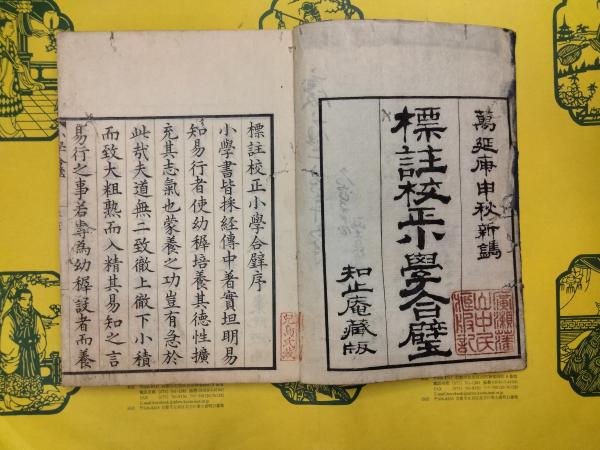 萬延庚申秋新鐫
標註校正小學合璧
知止庵藏版
標註校正小學合璧序
小學書皆採經傳中著實坦明易
知易行者使幼穉培養其德性擴
充其志氣也蒙養之功豈有急於
此哉夫道無二致徹上徹下小積
而致大粗熟而入精其易知之言
易行之事若專為幼穉設者而養